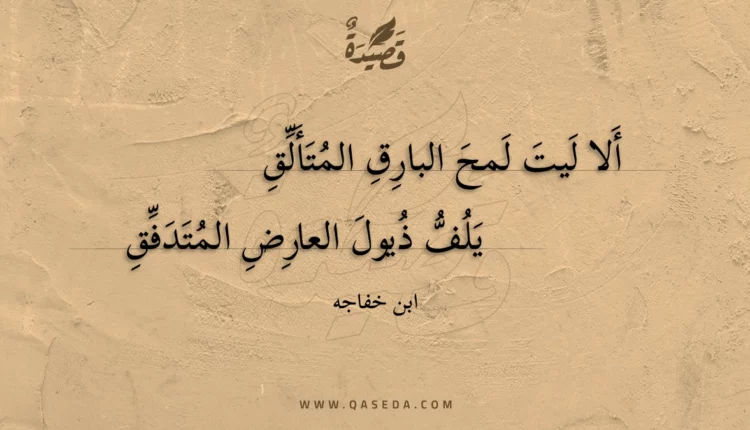 قَصِيدَةٌ
أَلا لَيتَ لَمحَ البارِقِ المُتَأَلِّقِ
يَلُفُّ ذُيولَ العارِضِ المُتَدَفِّقِ
ابن خفاجه
WWW.QASEDA.COM